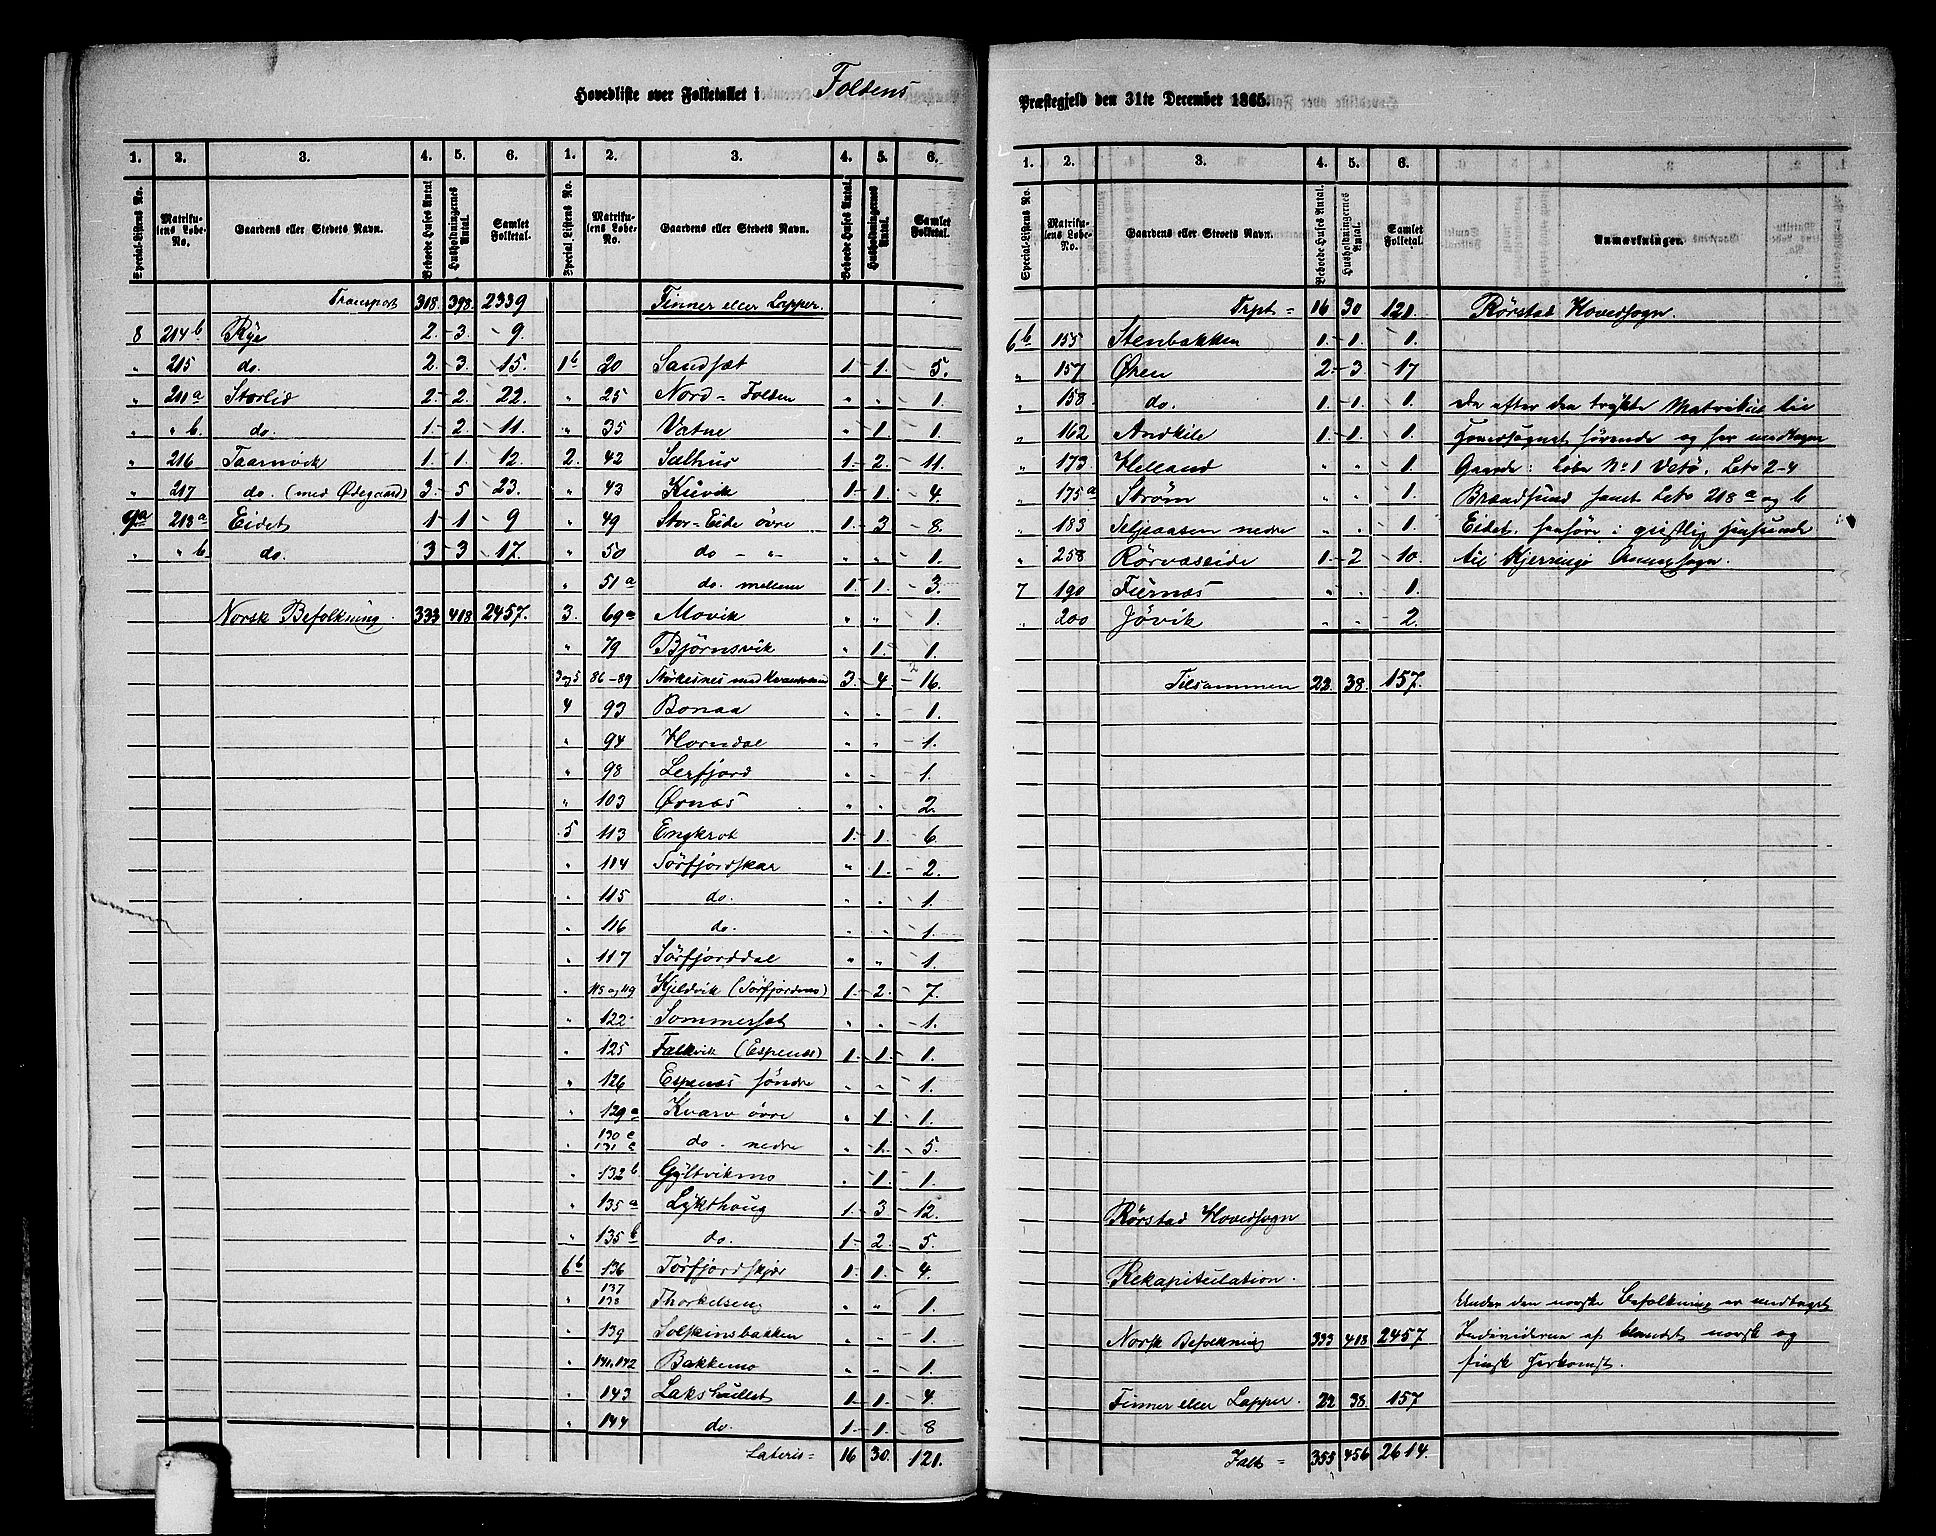 Hovedliste over Folketallet i Foldens Præstegjeld den 31te December 1865.
1. 2. 3. 4. 5. 6. 1. 2. 3. 4. 5. 6.
Special-Listens No. Matrikulens Løbe-No. Gaardens eller Stedets Navn. Beboede Huses Antal. Husholdningernes Antal. Samlet Folketal. Special Listens No. Matrikulens Løbe-No. Gaardens eller Stedets Navn. Beboede Huses Antal. Husholdningernes Antal. Samlet Folketal.
Transport 318. 398. 2339
8 214 b Rye 2 - 3 - 9.
" 215 do. 2 - 3 - 15.
" 211 a Storlid 2 - 2 - 22.
" " b. do. 1 - 2 - 11.
" 216 Taarnvik 1 - 1 - 12.
" 217 do. (med Ødegaard) 3 - 5 - 23.
9a 218 a Eidet 1 - 1 - 9
" " b do. 3 - 3 - 17.
Norsk Befolkning 333 418 2457.
Finner eller Lapper.
1 b 20 Sandsæt 1 - 1 - 5.
" 25 Nord-Folden " " 1.
" 35 Vatne " 1 - 1.
2. 42 Salhus 1 - 2 - 11.
" 43 Kilvik 1 - 1 - 4.
" 49 Stor-Eide övre 1 - 3 - 8.
" 50 do - " - " " 1.
" 51 a do. mellem 1 - 1 - 3.
3. 69 a Movik " " 1.
" 79 Björnsvik " 1 - 1.
3 og 5 86-89 Storkesnes med 3 - 4 - 16.
4 93 Bonaa " " 1.
" 94 Horndal " " 1.
" 98 Lerfjord " " 1.
" 103 Ørnæs " " 2.
5 113 Engkrot 1 - 1 - 6
" 114 Sörfjordskar " 1 - 2.
" 115 do. " " 1.
" 116 do. " " 1.
" 117 Sörfjorddal " " 1.
" 118 og 119 Kjeldvik (Sörfjordmo) 1 - 2 - 7.
" 122 Sommerset " " 1.
" 125 Falkvik (Espenæs) 1 - 1 - 1.
" 126 Espenæs söndre " " 1.
" 129 a Kvarv övre " 1 - 1.
" 130 c 131 c do. nedre " 1 - 5.
" 132 b Gyltvikmo 1 - 1.
" 135 a Lyksthoug 1 - 3 - 12.
" 135 b do. 1 - 2 - 5.
6 b 136 Törfjordskjær 1 - 1 - 4.
" 137 138 Thorkelseng " " 1.
" 139 Solskinsbakken " " 1.
" 141, 142 Bakkemo " " 1.
" 143 Lakshullet 1 - 1 - 4
" 144 do. 1 - 1 - 8
Lateris = 16 30. 121.
1. 2. 3. 4. 5. 6.
Special-Listens No. Matrikulens Løbe-No. Gaardens eller Stedets Navn. Beboede Huses Antal. Husholdningernes Antal. Samlet Folketal. Anmærkninger.
Trpt = 16 30 121. Rörstad Hovedsogn.
6 b 155 Stenbakken 1 - 1 - 1.
" 157 Øren 2 - 3 - 17
" 158 do. 1 - 1 - 1. Da efter den trykte Matrikul til
" 162 Andkile 1 - 1 - 1. Hovedsognet hörende og her medtagne
" 173 Helland " " 1. Gaarde: Löbe No 1 Vetö, Lebo 2-4
" 175 a Ström " " 1. Brandsund samt Lebo 218 a og b
" 183 Seljeaasen nedre " " 1. Eidet, henhöre i geistlig henseende
" 258 Rörvaseide 1 - 2 - 10. til Kjerringö Annexsogn.
7 190 Fiernæs " - 1.
" 200 Jövik " " 2.
Tilsammen 22. 38. 157.
Rörstad Hovedsogn
Rekapitulation.
Under den norske Befolkning er medtaget
Norsk Befolkning 333 418 2457 Individerne af blandet norsk og
finsk Herkomst.
Finner eller Lapper. 22 38. 157
Ialt = 355 456 2614.